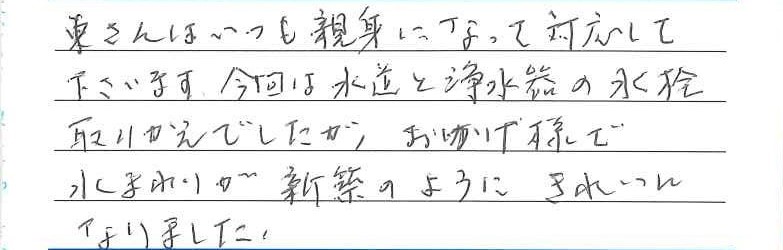 東さんはいつも親身になって対応して
下さいます。今回は水道と浄水器の水栓
取りかえでしたが、おかげ様で
水まわりが新築のように きれいに
なりました。